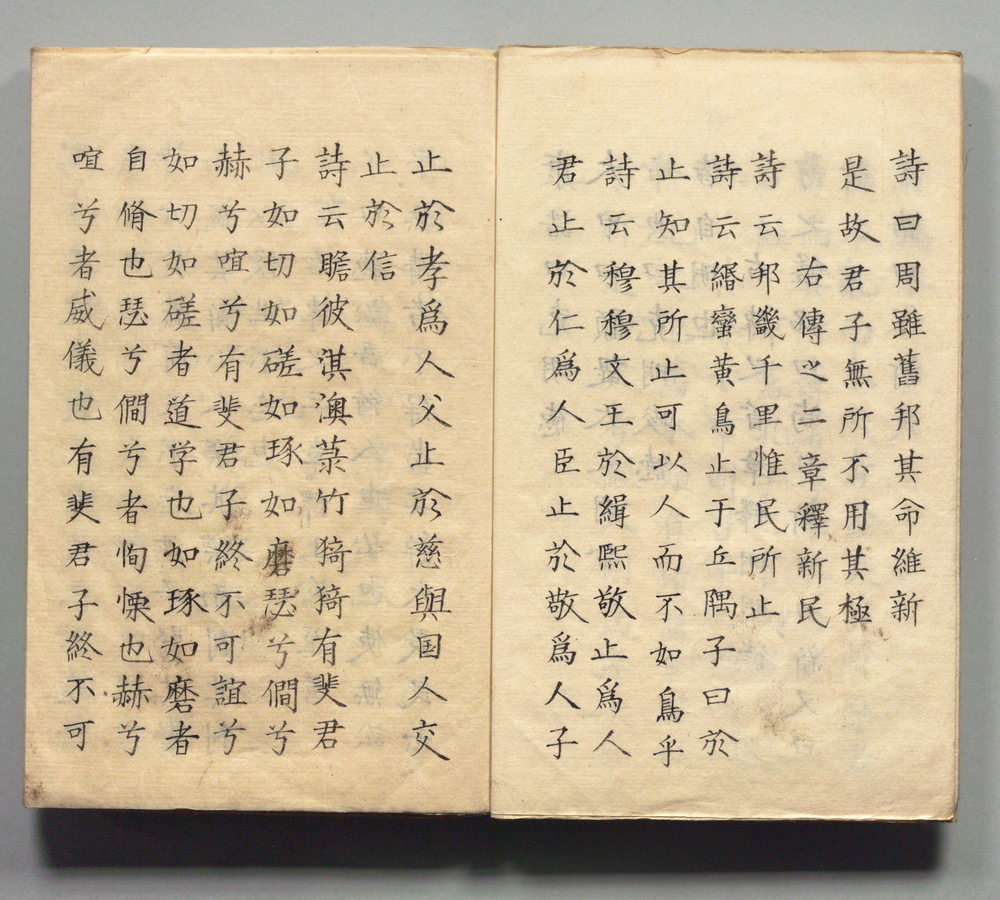 詩曰周雖舊邦其命維新
是故君子無所不用其極
右傳之二章釋新民
詩云邦畿千里惟民所止
詩云緡蠻黄鳥止于丘隅子曰於
止知其所止可以人而不如鳥乎
詩云穆穆文王於緝熙敬止爲人
君止於仁爲人臣止於敬爲人子
止於孝爲人父止於慈與国人交
止於信
詩云瞻彼淇澳菉竹猗猗有斐君
子如切如磋如琢如磨瑟兮僩兮
赫兮喧兮有斐君子終不可諠兮
如切如磋者道学也如琢如磨者
自脩也瑟兮僩兮者恂慄也赫兮
喧兮者威儀也有斐君子終不可